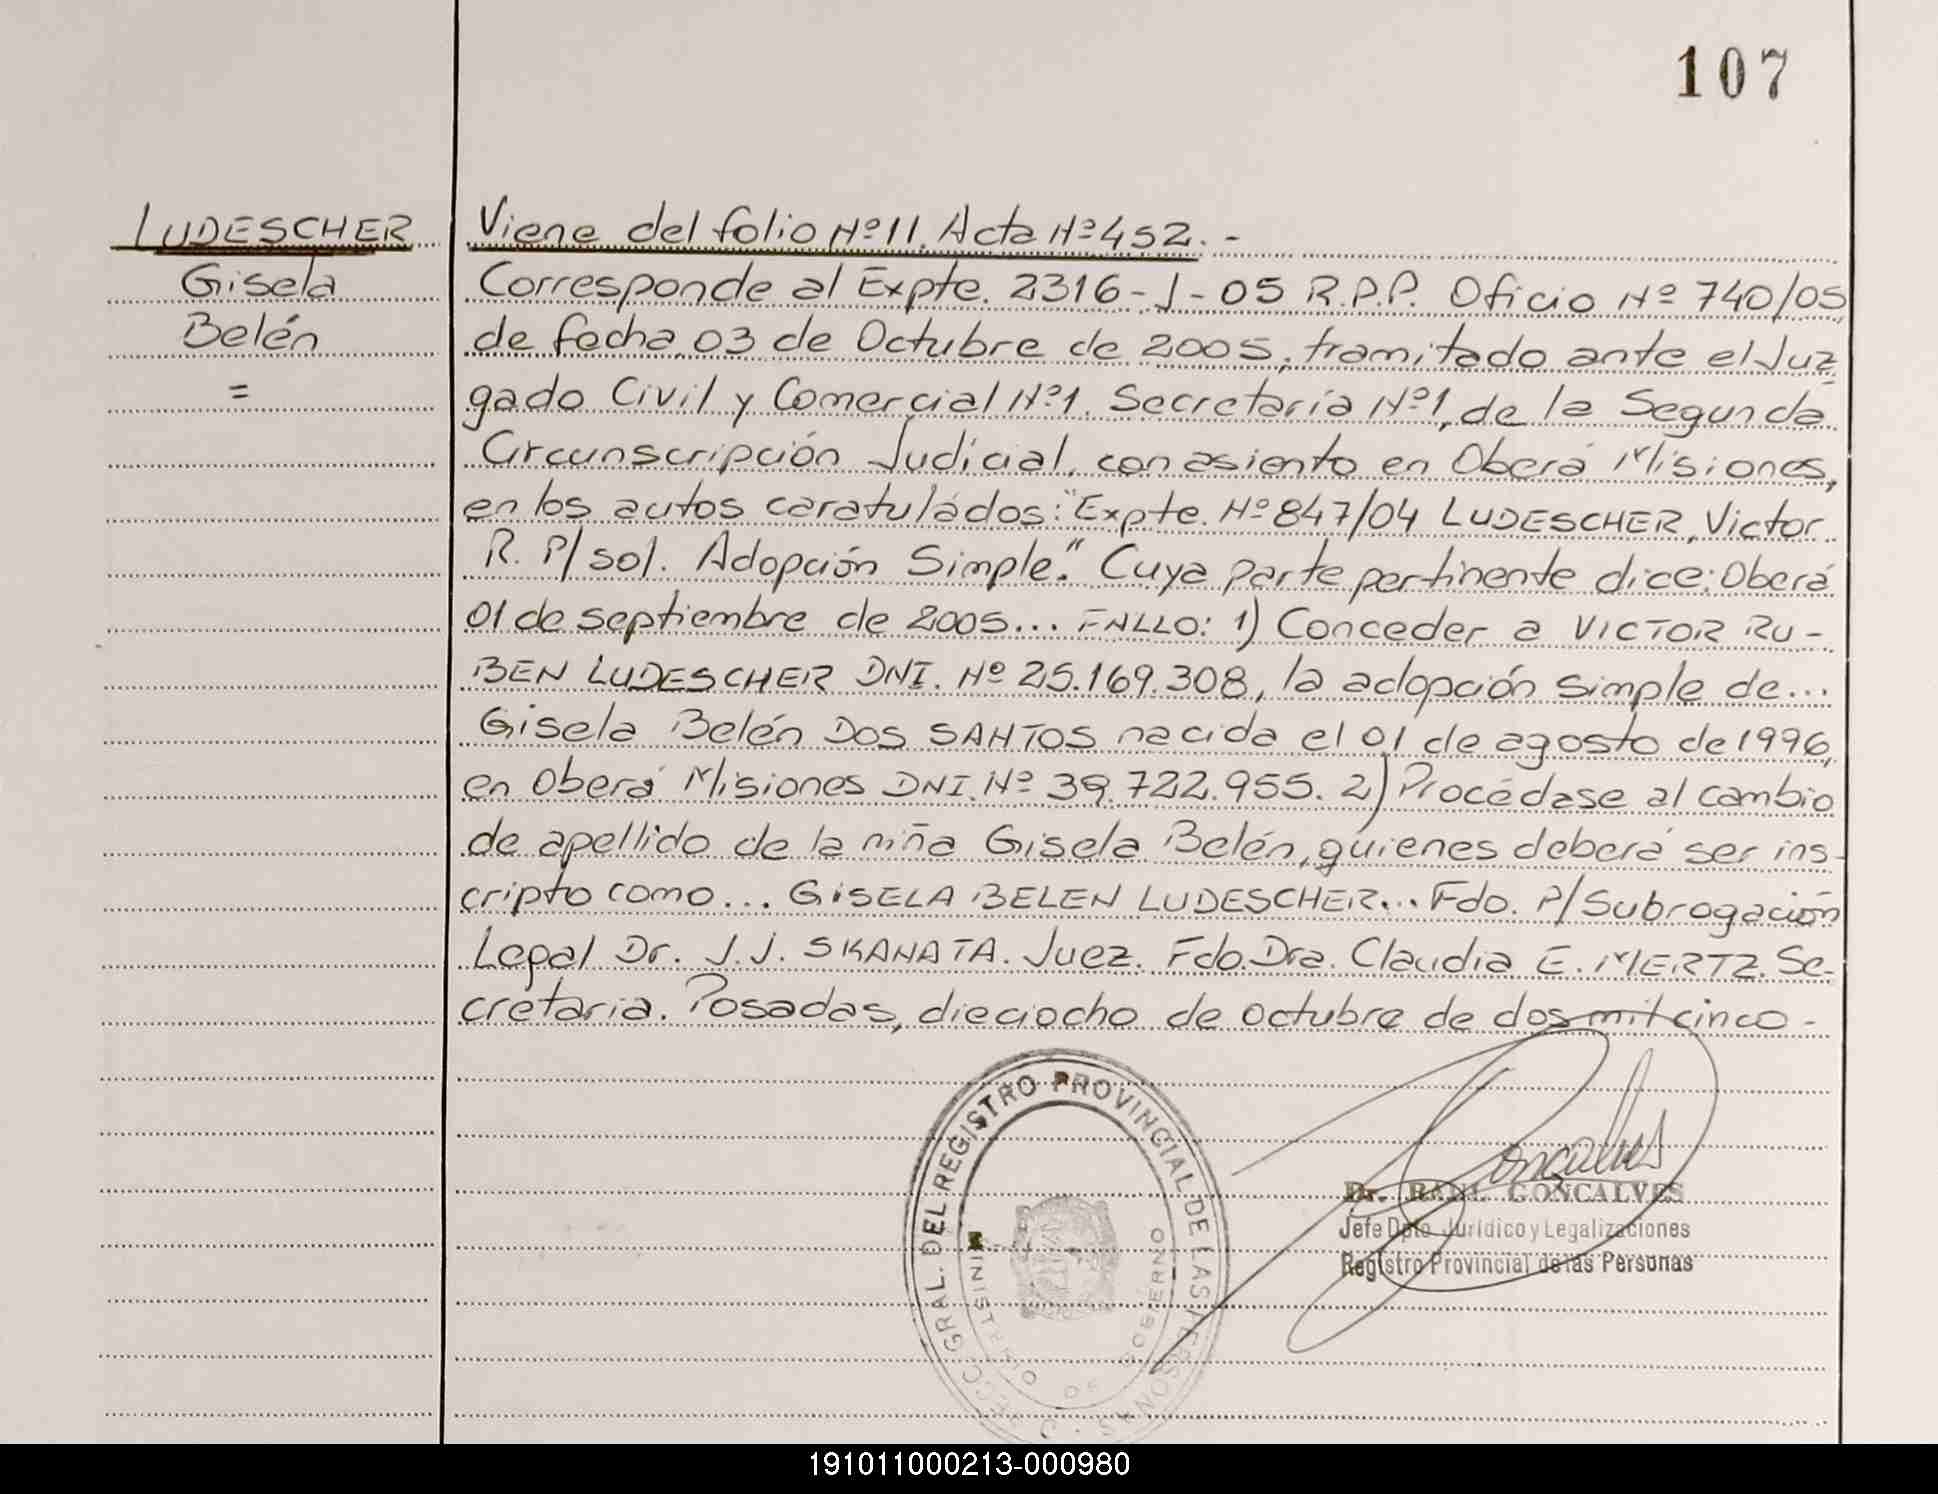 107
LUDESCHER
Gisela
Belén
=
Viene del folio Nº 11. Acta Nº 452. -
Corresponde al Expte. 2316-J-05 R.P.P. Oficio Nº 740/05,
de fecha 03 de Octubre de 2005, tramitado ante el Juz
gado Civil y Comercial Nº1. Secretaría Nº1, de la Segunda
Circunscripción Judicial, con asiento en Oberá Misiones,
en los autos caratulados: "Expte. Nº 847/04 LUDESCHER, Victor
R. P/ sol. Adopción Simple." Cuya parte pertinente dice: Oberá
01 de septiembre de 2005... FALLO: 1) Conceder a VICTOR RU-
BEN LUDESCHER DNI. Nº 25.169.308, la adopción simple de...
Gisela Belén DOS SANTOS nacida el 01 de agosto de 1996,
en Oberá Misiones DNI. Nº 39.722.955. 2) Procédase al cambio
de apellido de la niña Gisela Belén, quienes deberá ser ins-
cripto como... GISELA BELEN LUDESCHER... Fdo. P/ Subrogación
Legal Dr. J.J. SKANATA. Juez. Fdo. Dra. Claudia E. MERTZ. Se-
cretaria. Posadas, dieciocho de octubre de dos mil cinco -
DIRECC. GRAL. DEL REGISTRO PROVINCIAL DE LAS PERSONAS
MINISTERIO DE GOBIERNO
Goncalves
Dr. RAUL GONCALVES
Jefe Dpto. Jurídico y Legalizaciones
Registro Provincial de las Personas
191011000213-000980